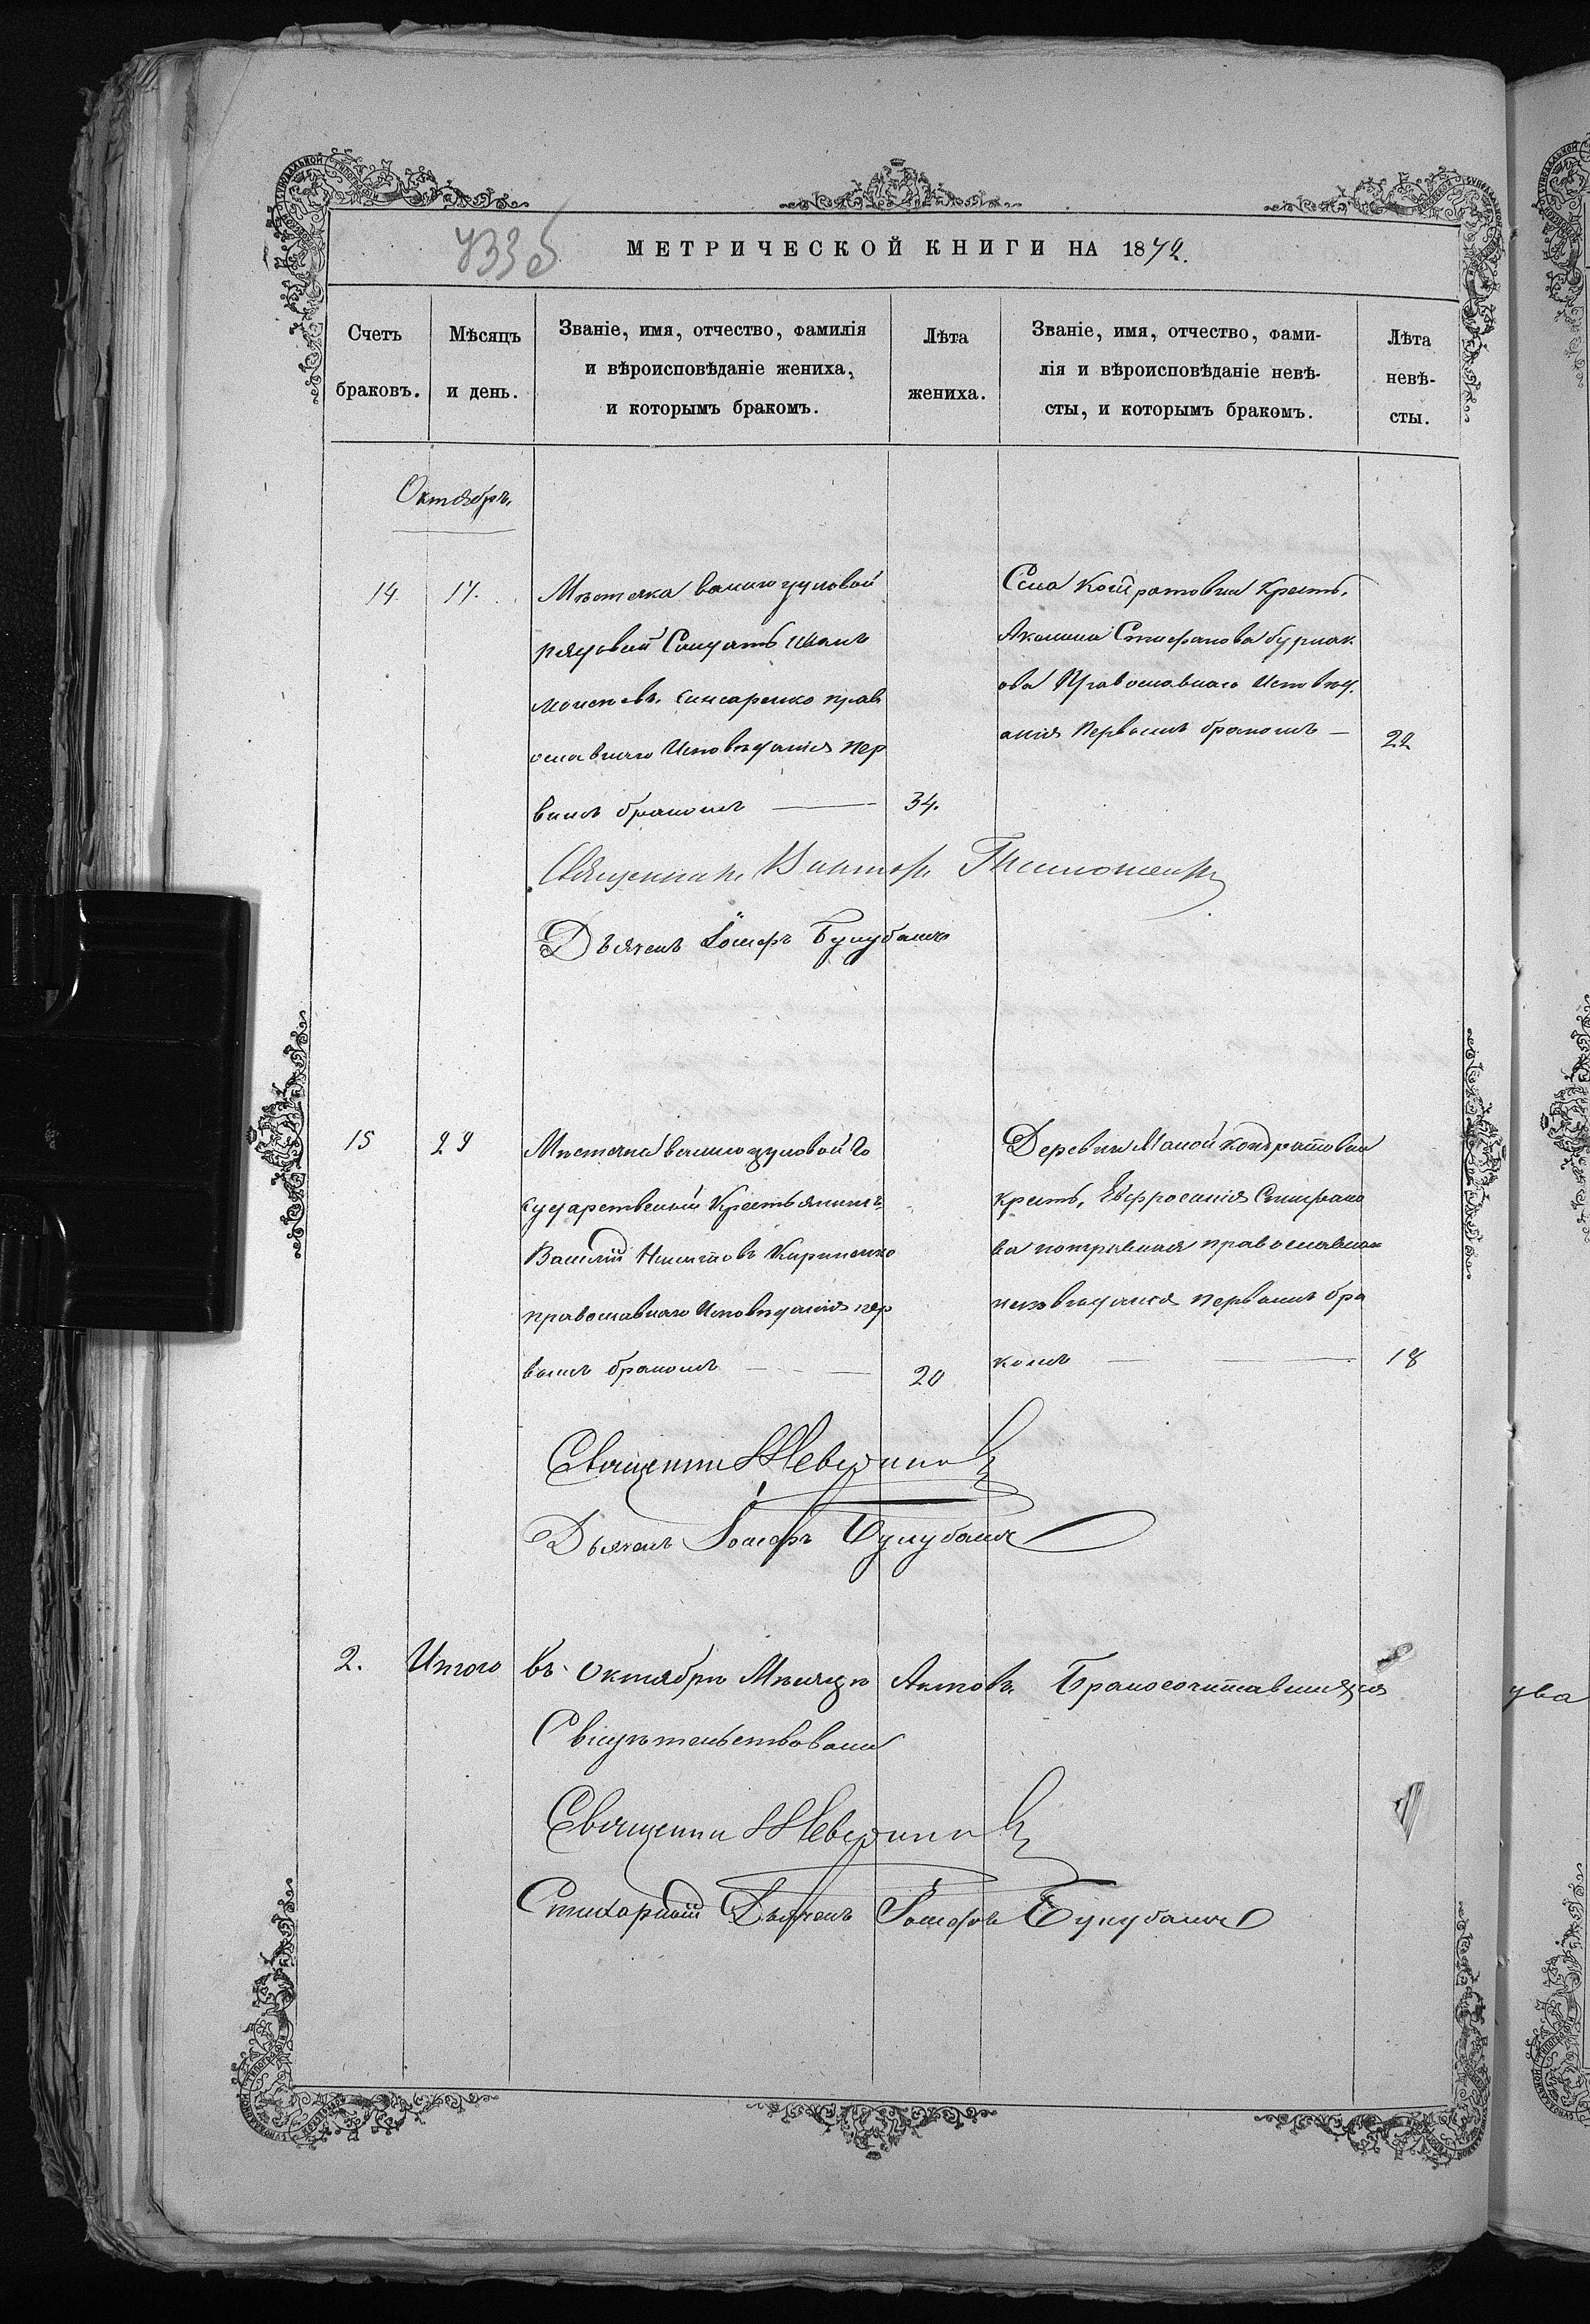 МЕТРИЧЕСКОЙ КНИГИ НА 1872.
Счетъ браковъ.
Мѣсяцъ и день.
Званіе, имя, отчество, фамилія
и вѣроисповѣданіе жениха,
и которымъ бракомъ.
Лѣта жениха.
Званіе, имя, отчество, фами-
лія и вѣроисповѣданіе невѣ-
сты, и которымъ бракомъ.
Лѣта невѣ-
сты.
Октябрь.
14. 17.
Мѣстечка
рядовый Солдатъ Иванъ
прав
ославнаго Исповѣданія пер
вымъ бракомъ — 34.
Села Кондратовки Крест.
Акилина Стефанова
ова Православнаго Исповѣд.
анія Первымъ бракомъ — 22
Священникъ Викторъ
Дьячекъ Іосифъ
15 29
Мѣстечка Го
сударственый Крестьянинъ
Василій Никитовъ Кириченко
православнаго Исповѣданія пер
вымъ бракомъ — 20
Деревни Малой Кондратовки
крест. Евфросинія Стефано
ва православнаго
исповѣданія первымъ бра
комъ — 18
Дьячекъ Іосифъ
2. Итого въ Октябрѣ Мѣсяцѣ Актовъ Бракосочитавшихся два
Свидѣтельствовали
Стихарный Дьячекъ Іосифъ